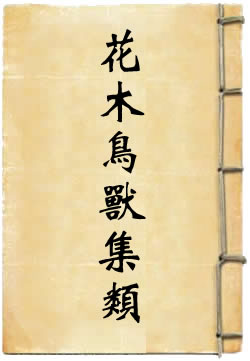 花木鳥獸集類